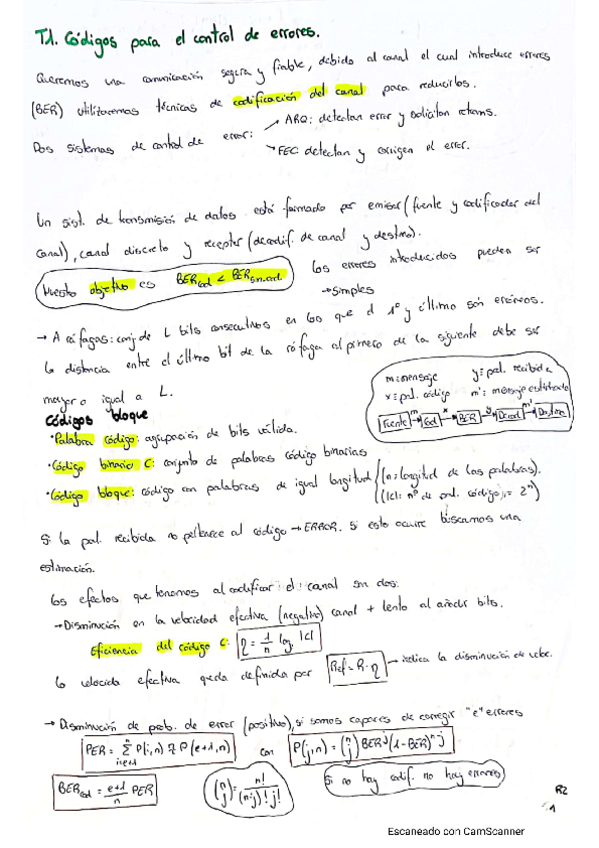 T.1. Códigos para el control de errores.
Queremos una comunicación segura y fiable, debido al canal el cual introduce errores
(BER) utilizaremos técnicas de codificación del canal para reducirlos.
Dos sistemas de control de error: → ARQ: detectan error y solicitan retrans.
→ FEC detectan y corrigen el error.
Un sist. de transmisión de datos está formado por emisor (fuente y codificador del
canal), canal discreto y receptor (decodif. de canal y destino).
Nuestro objetivo es BERcod < BERsin cod. Los errores introducidos pueden ser
→ Simples
→ A ráfagas: conj. de L bits consecutivos en los que el 1º y último son erróneos.
la distancia entre el último bit de la ráfaga al primero de la siguiente debe ser
mayor o igual a L.
m = mensaje y = pal. recibida
x = pal. código m' = mensaje estimado
Fuente m→ Cod x→ BER y→ Decod m'→ Destino
Códigos bloque
· Palabra código: agrupación de bits válida.
· Código binario C: conjunto de palabras código binarias
· Código bloque: código con palabras de igual longitud { (n = longitud de las palabras).
(|C|: nº de pal. código, = 2^n)
Si la pal. recibida no pertenece al código → ERROR. Si esto ocurre buscamos una
estimación.
Los efectos que tenemos al codificar el canal son dos:
→ Disminución en la velocidad efectiva (negativo) canal + lento al añadir bits.
Eficiencia del código C: η = 1/n log₂ |C|
la velocidad efectiva queda definida por Ref = R · η → indica la disminución de veloc.
→ Disminución de prob. de error (positivo), si somos capaces de corregir "e" errores
PER = Σ^n_{i=e+1} P(i,n) ≈ P(e+1,n) con P(j,n) = (n j) BER^j (1-BER)^{n-j}
BERcod = e+1/n PER (n j) = n!/(n-j)! j! Si no hay codif. no hay errores
R2
1
Escaneado con CamScanner